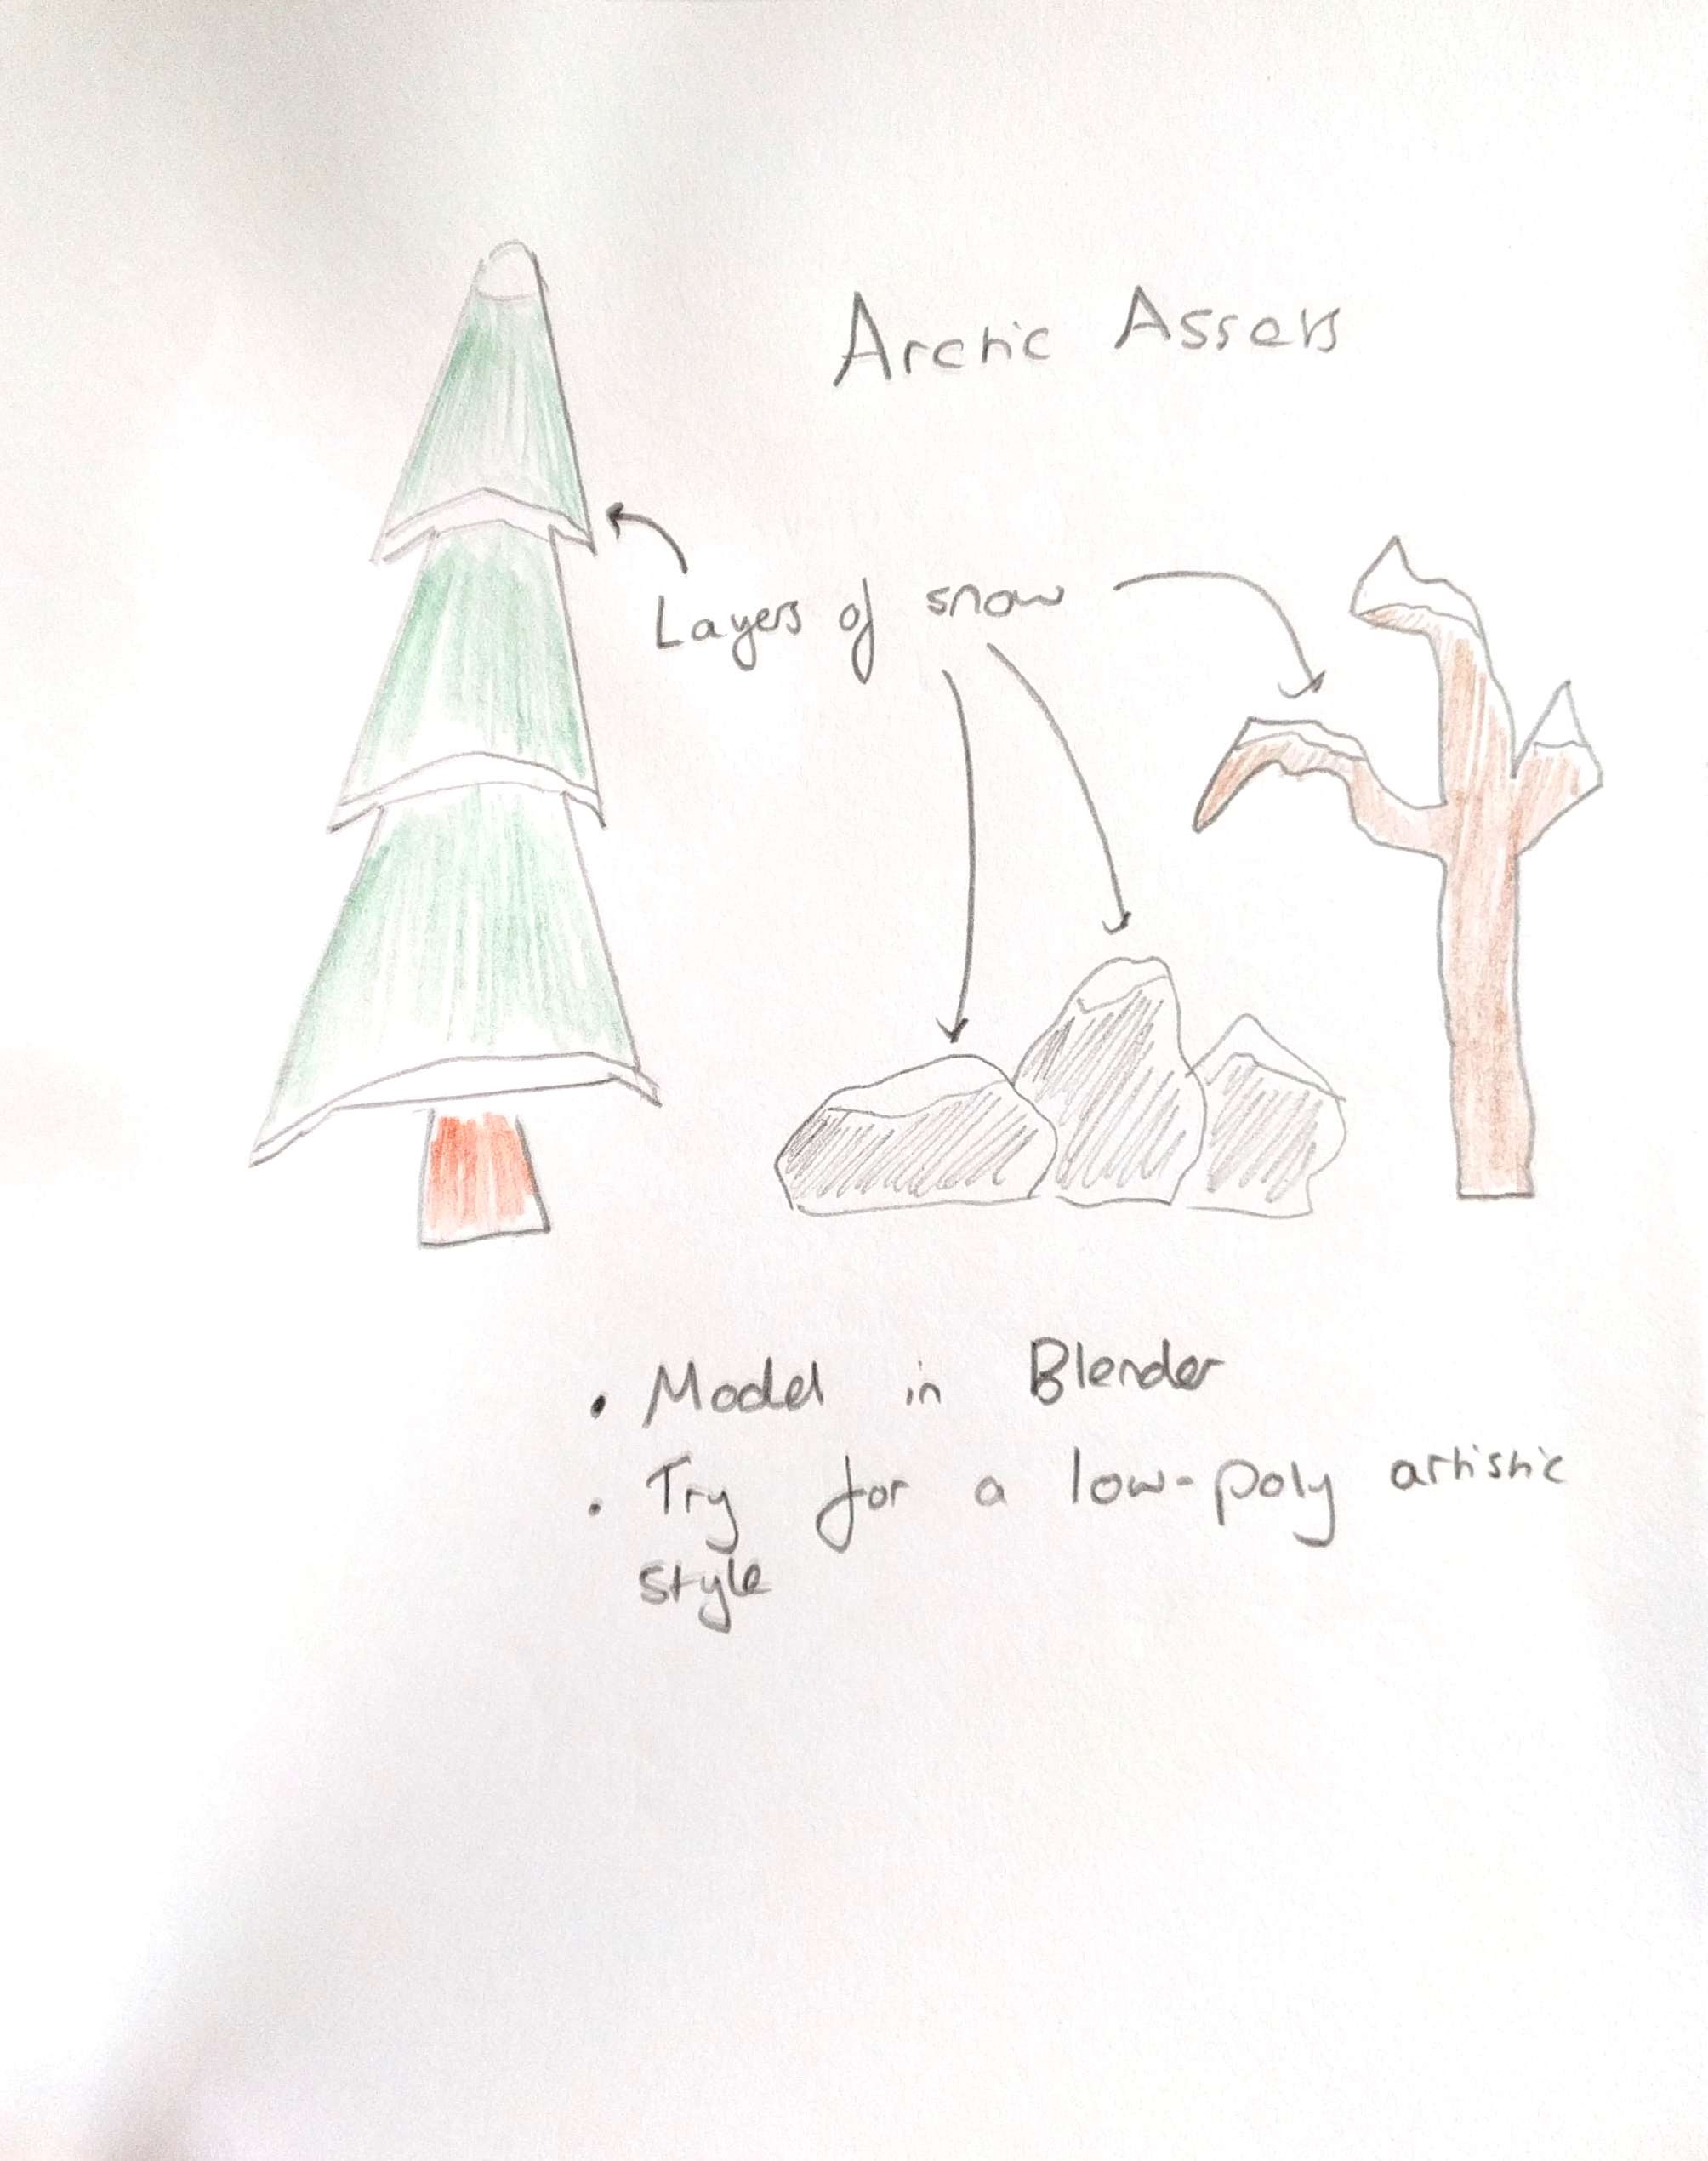 Arctic Assets
Layers of snow
• Model in Blender
• Try for a low-poly artistic
style